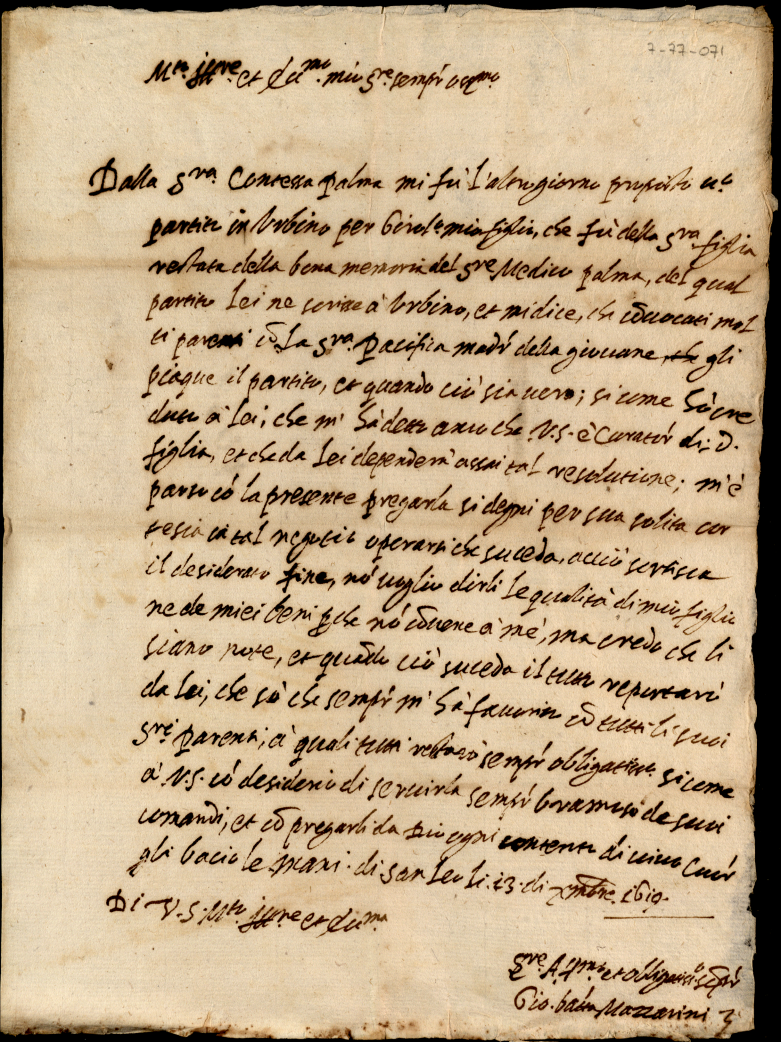 7-77-071
Mto Illre et Ecc.mo mio Sre sempr oss.mo
Dalla Sra Contessa Palma mi fù l'altro giorno proposto un
partito in Urbino per Girol.e mio figlio, che fù della Sra figlia
restata della bona memoria del Sre Medico Palma, del qual
partito lei ne scrisse à Urbino, et mi dice, che cōvocati mol
ti parenti cō la Sra Pacifica madr della giovane gli
piaque il partito, et quando ciò sia vero; si come hò cre
duto à lei, che m' hà detto anco che V.S. è Curator di d.
figlia, et che da lei dependerà assai tal resolutione; m'è
parso cō la presente pregarla si degni per sua solita cor
tesia ī tal negotio operarsi che suceda, acciò sortisca
il desiderato fine, nō voglio dirli le qualità di mio figlio
ne de miei beni pche nō cōvene à mè, ma credo che li
siano note, et quādo ciò suceda il tutto reportarò
da lei, che sò che sempr m' hà favorito cō tutti li suoi
Sri Parenti, à quali tutti restarò sempr obligatiss.o si come
à V.S. cō desiderio di servirla sempr bramoso de suoi
comandi, et cō pregarli da Dio ogni contento di vivo Cuor
gli bacio le mani. di San Leo li .13. di Xmbre. 1619.
Di V.S. Mto Illre et Ecc.ma
Sre Aff.mo et obligatiss.o sēpr
Gio. batta Mazzarini